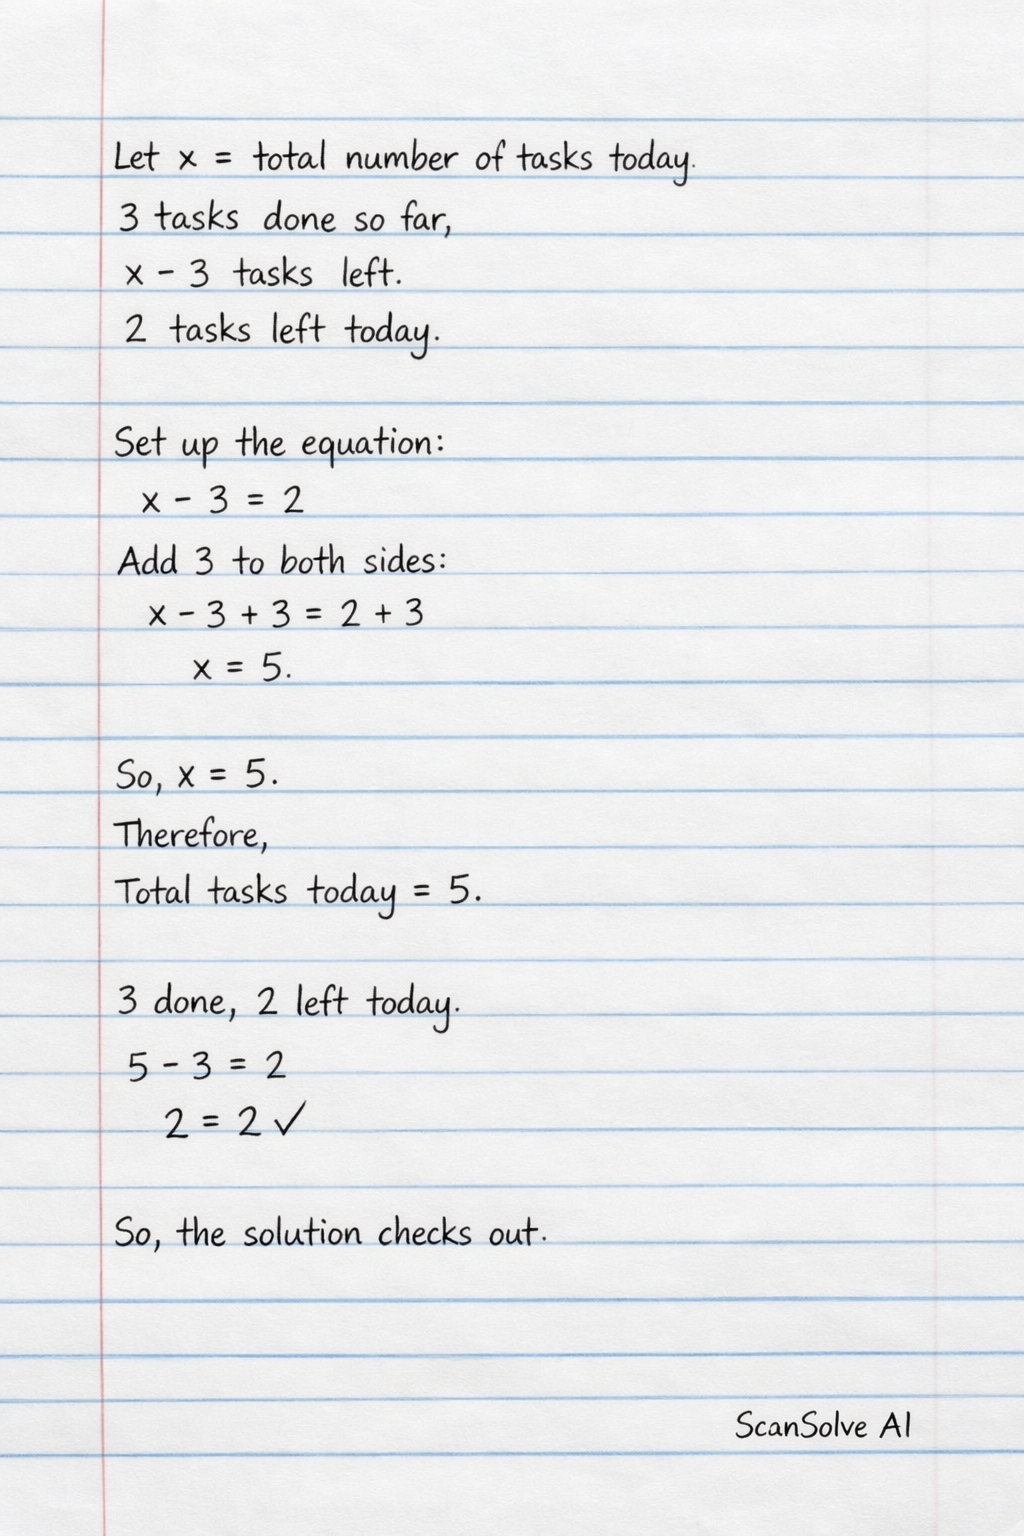 Let x = total number of tasks today.
3 tasks done so far,
x - 3 tasks left.
2 tasks left today.
Set up the equation:
x - 3 = 2
Add 3 to both sides:
x - 3 + 3 = 2 + 3
x = 5.
So, x = 5.
Therefore,
Total tasks today = 5.
3 done, 2 left today.
5 - 3 = 2
2 = 2 ✓
So, the solution checks out.
ScanSolve AI